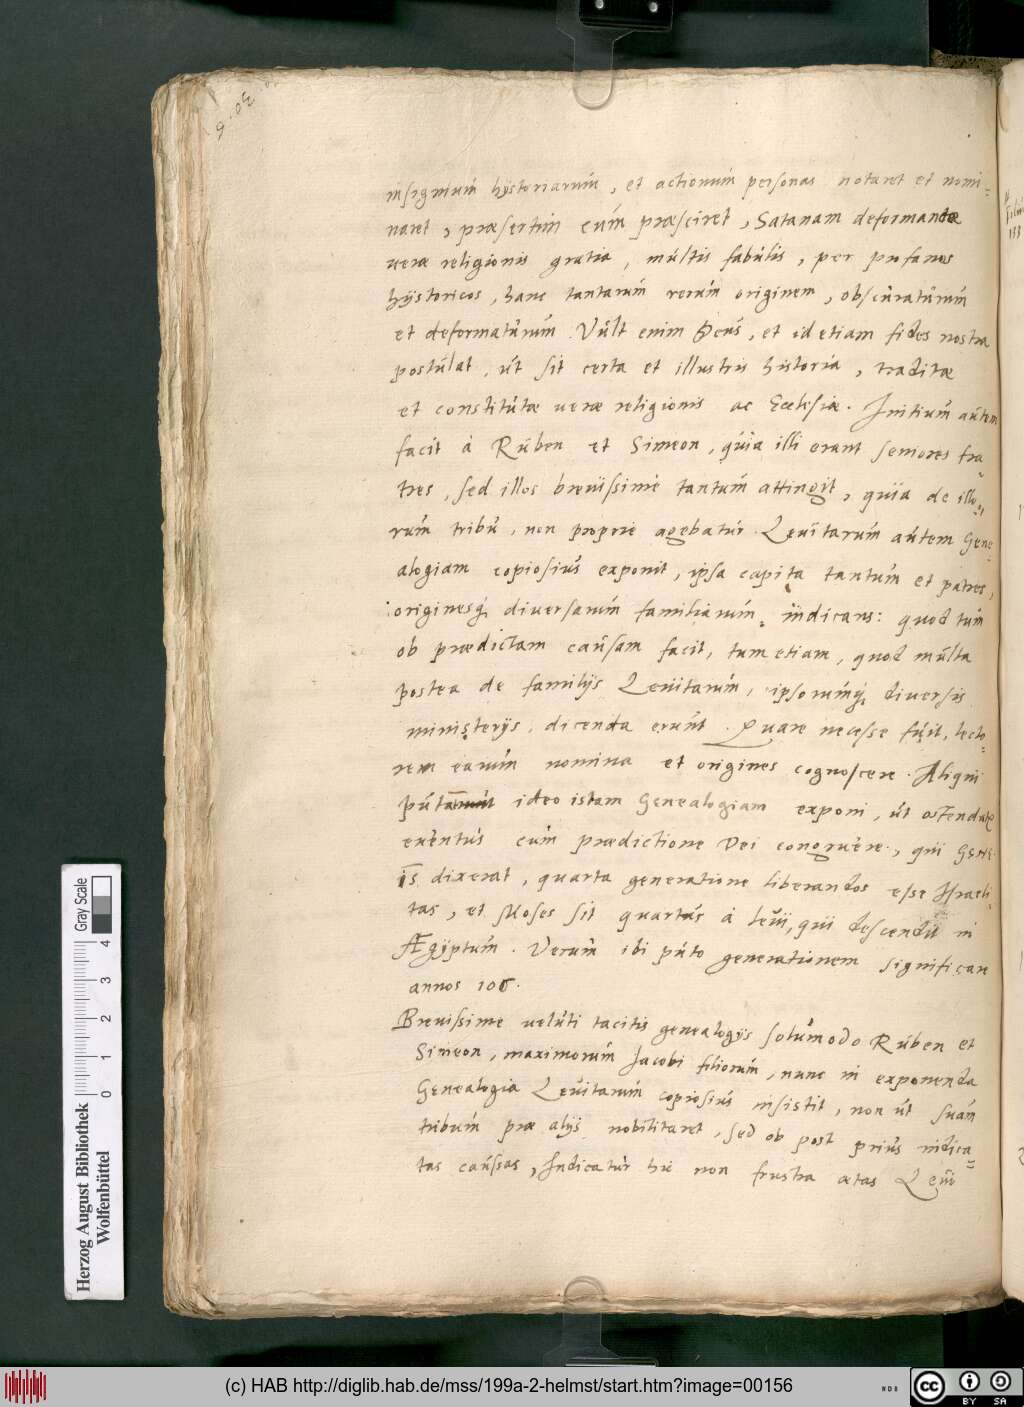 insignium hÿstoriarum, et actionum personas notaret et nomi=
naret, præsertim cum præsciret, Satanam deformandæ
veræ religionis gratia, multis fabulis, per profanos
hÿstoricos, hanc tantarum rerum originem, obscuraturum
et deformaturum. Vult enim Deus, et id etiam fides nostra
postulat, ut sit certa et illustris historia, traditæ
et constitutæ veræ religionis ac Ecclesiæ. Initium autem
facit à Ruben et Simeon, quia illi erant seniores fra=
tres, sed illos brevissime tantum attingit, quia de illo=
rum tribu, non proprie agebatur. Levitarum autem Gene=
alogiam copiosius exponit, ipsa capita tantum et patres,
originesq; diversarum familiarum, indicans: quod tum
ob prædictam causam facit, tum etiam, quod multa
postea de familijs Levitarum, ipsorumq; diversis
ministerijs, dicenda erunt. Quare necesse fuit, lecto=
rem earum nomina et origines cognoscere. Aliqui
putant ideo istam Genealogiam exponi, ut ostendatur
eventus cum prædictione Dei congruere, qui Gene.
15 dixerat, quarta generatione liberandos esse Israeli=
tas, et Moses sit quartus à Levi, qui descendit in
Ægÿptum. Verum ibi puto generationem significare
annos 100.
Brevissime veluti tacitis genealogijs solummodo Ruben et
Simeon, maximorum Jacobi filiorum, nunc in exponenda
Genealogia Levitarum copiosius insistit, non ut suam
tribum præ alijs nobilitaret, sed ob post prius indica=
tas caussas, Indicatur hic non frustra ætas Levi
Herzog August Bibliothek
Wolfenbüttel
0 1 2 3 4
Gray Scale
(c) HAB http://diglib.hab.de/mss/199a-2-helmst/start.htm?image=00156
cc BY SA